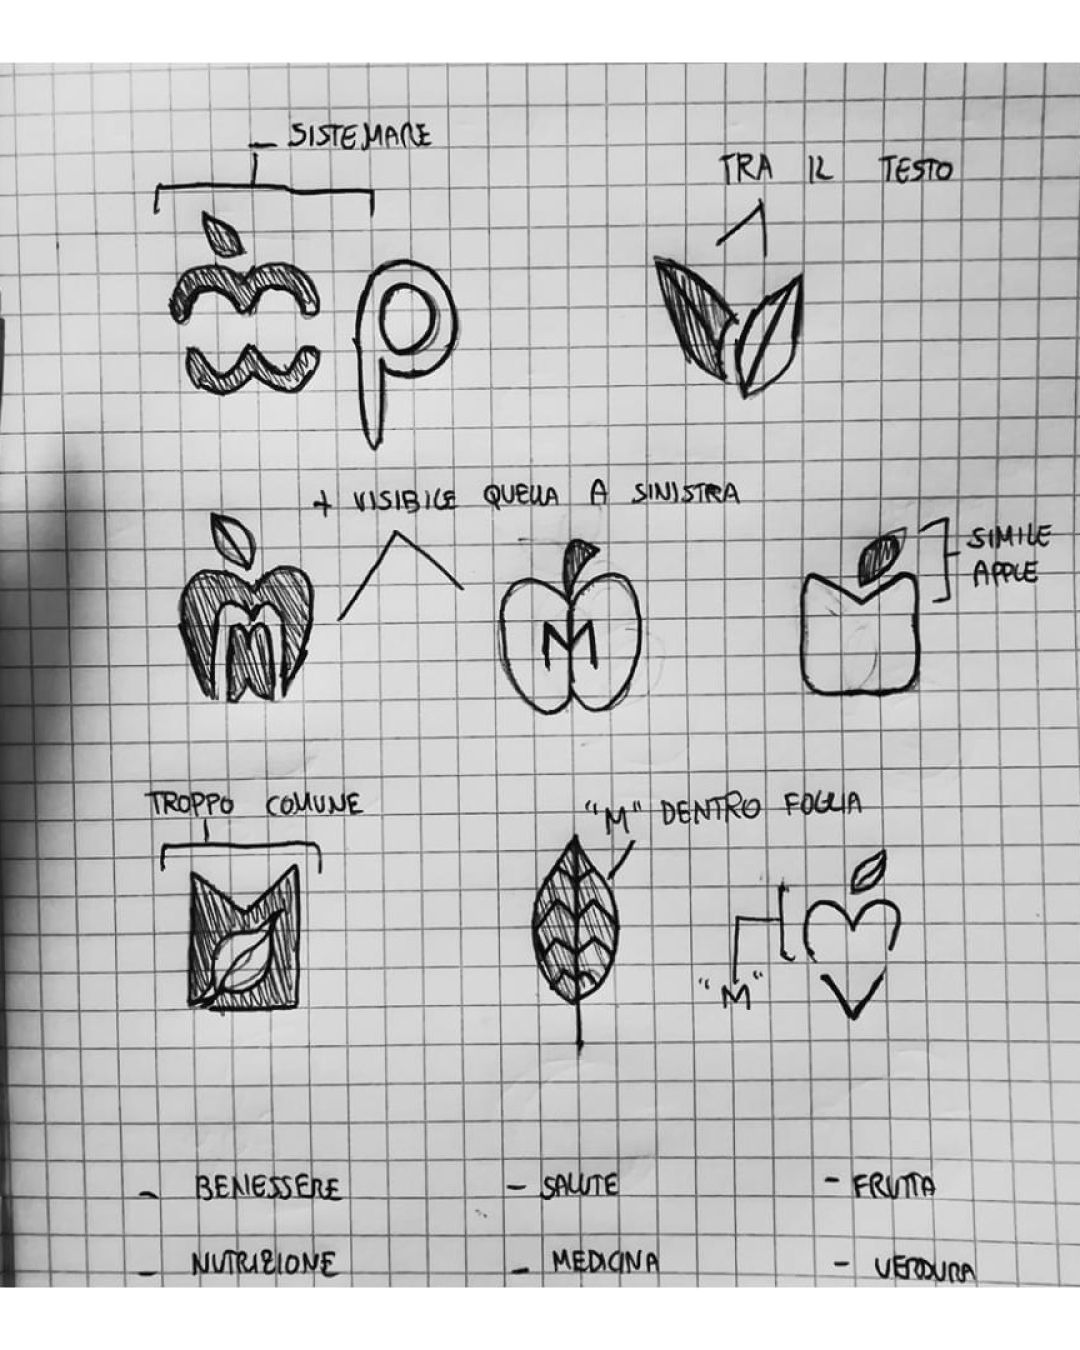 - SISTEMARE
TRA IL TESTO
p
+ VISIBILE QUELLA A SINISTRA
M
M
SIMILE
APPLE
TROPPO COMUNE
"M" DENTRO FOGLIA
"M"
- BENESSERE - SALUTE - FRUTTA
- NUTRIZIONE - MEDICINA - VERDURA